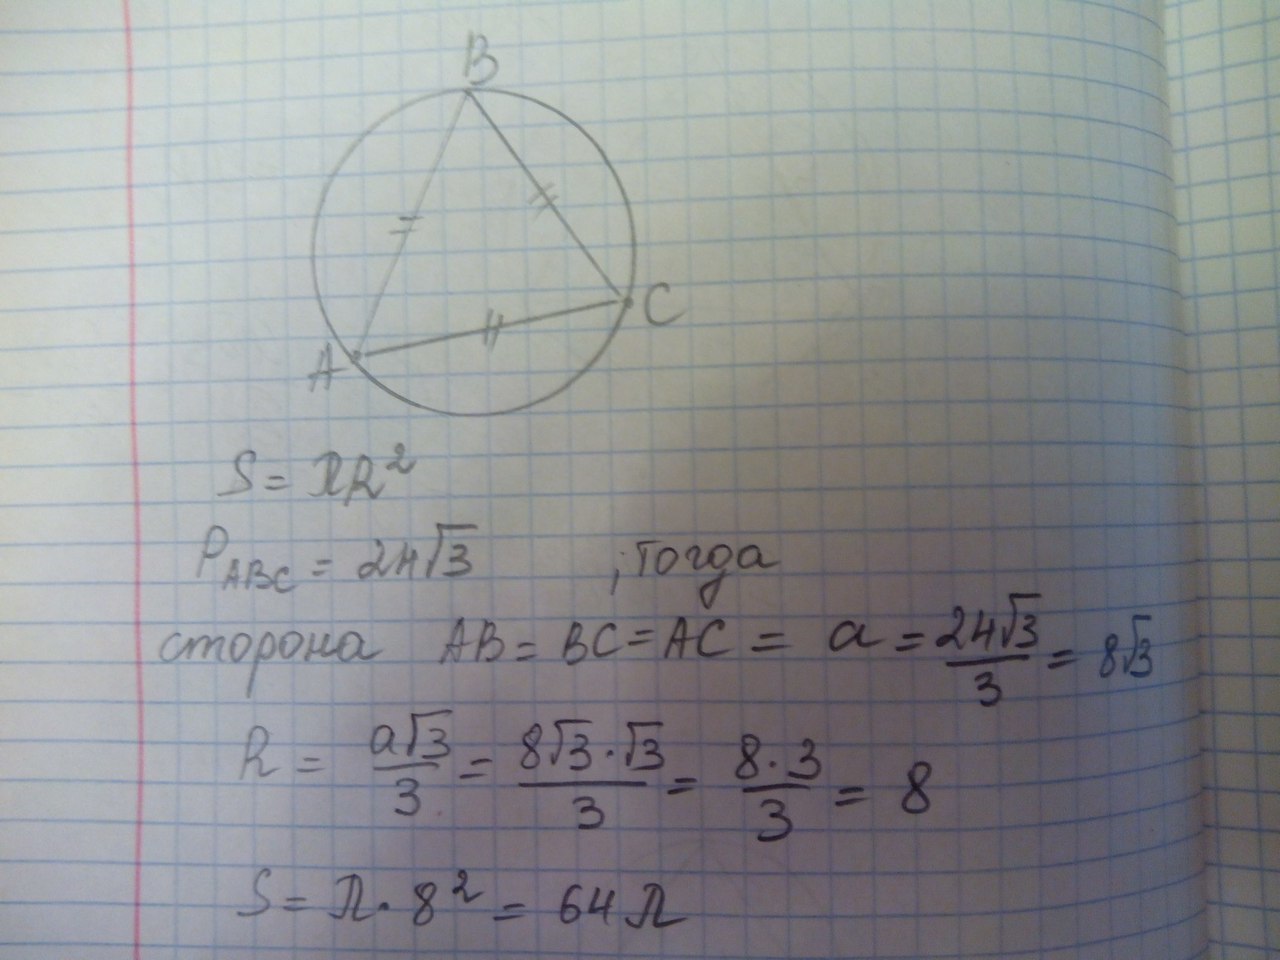 B
A
C
S = πR²
P_ABC = 24√3 ; тогда
сторона AB = BC = AC = a = 24√3/3 = 8√3
R = a√3/3 = 8√3·√3/3 = 8·3/3 = 8
S = π·8² = 64π